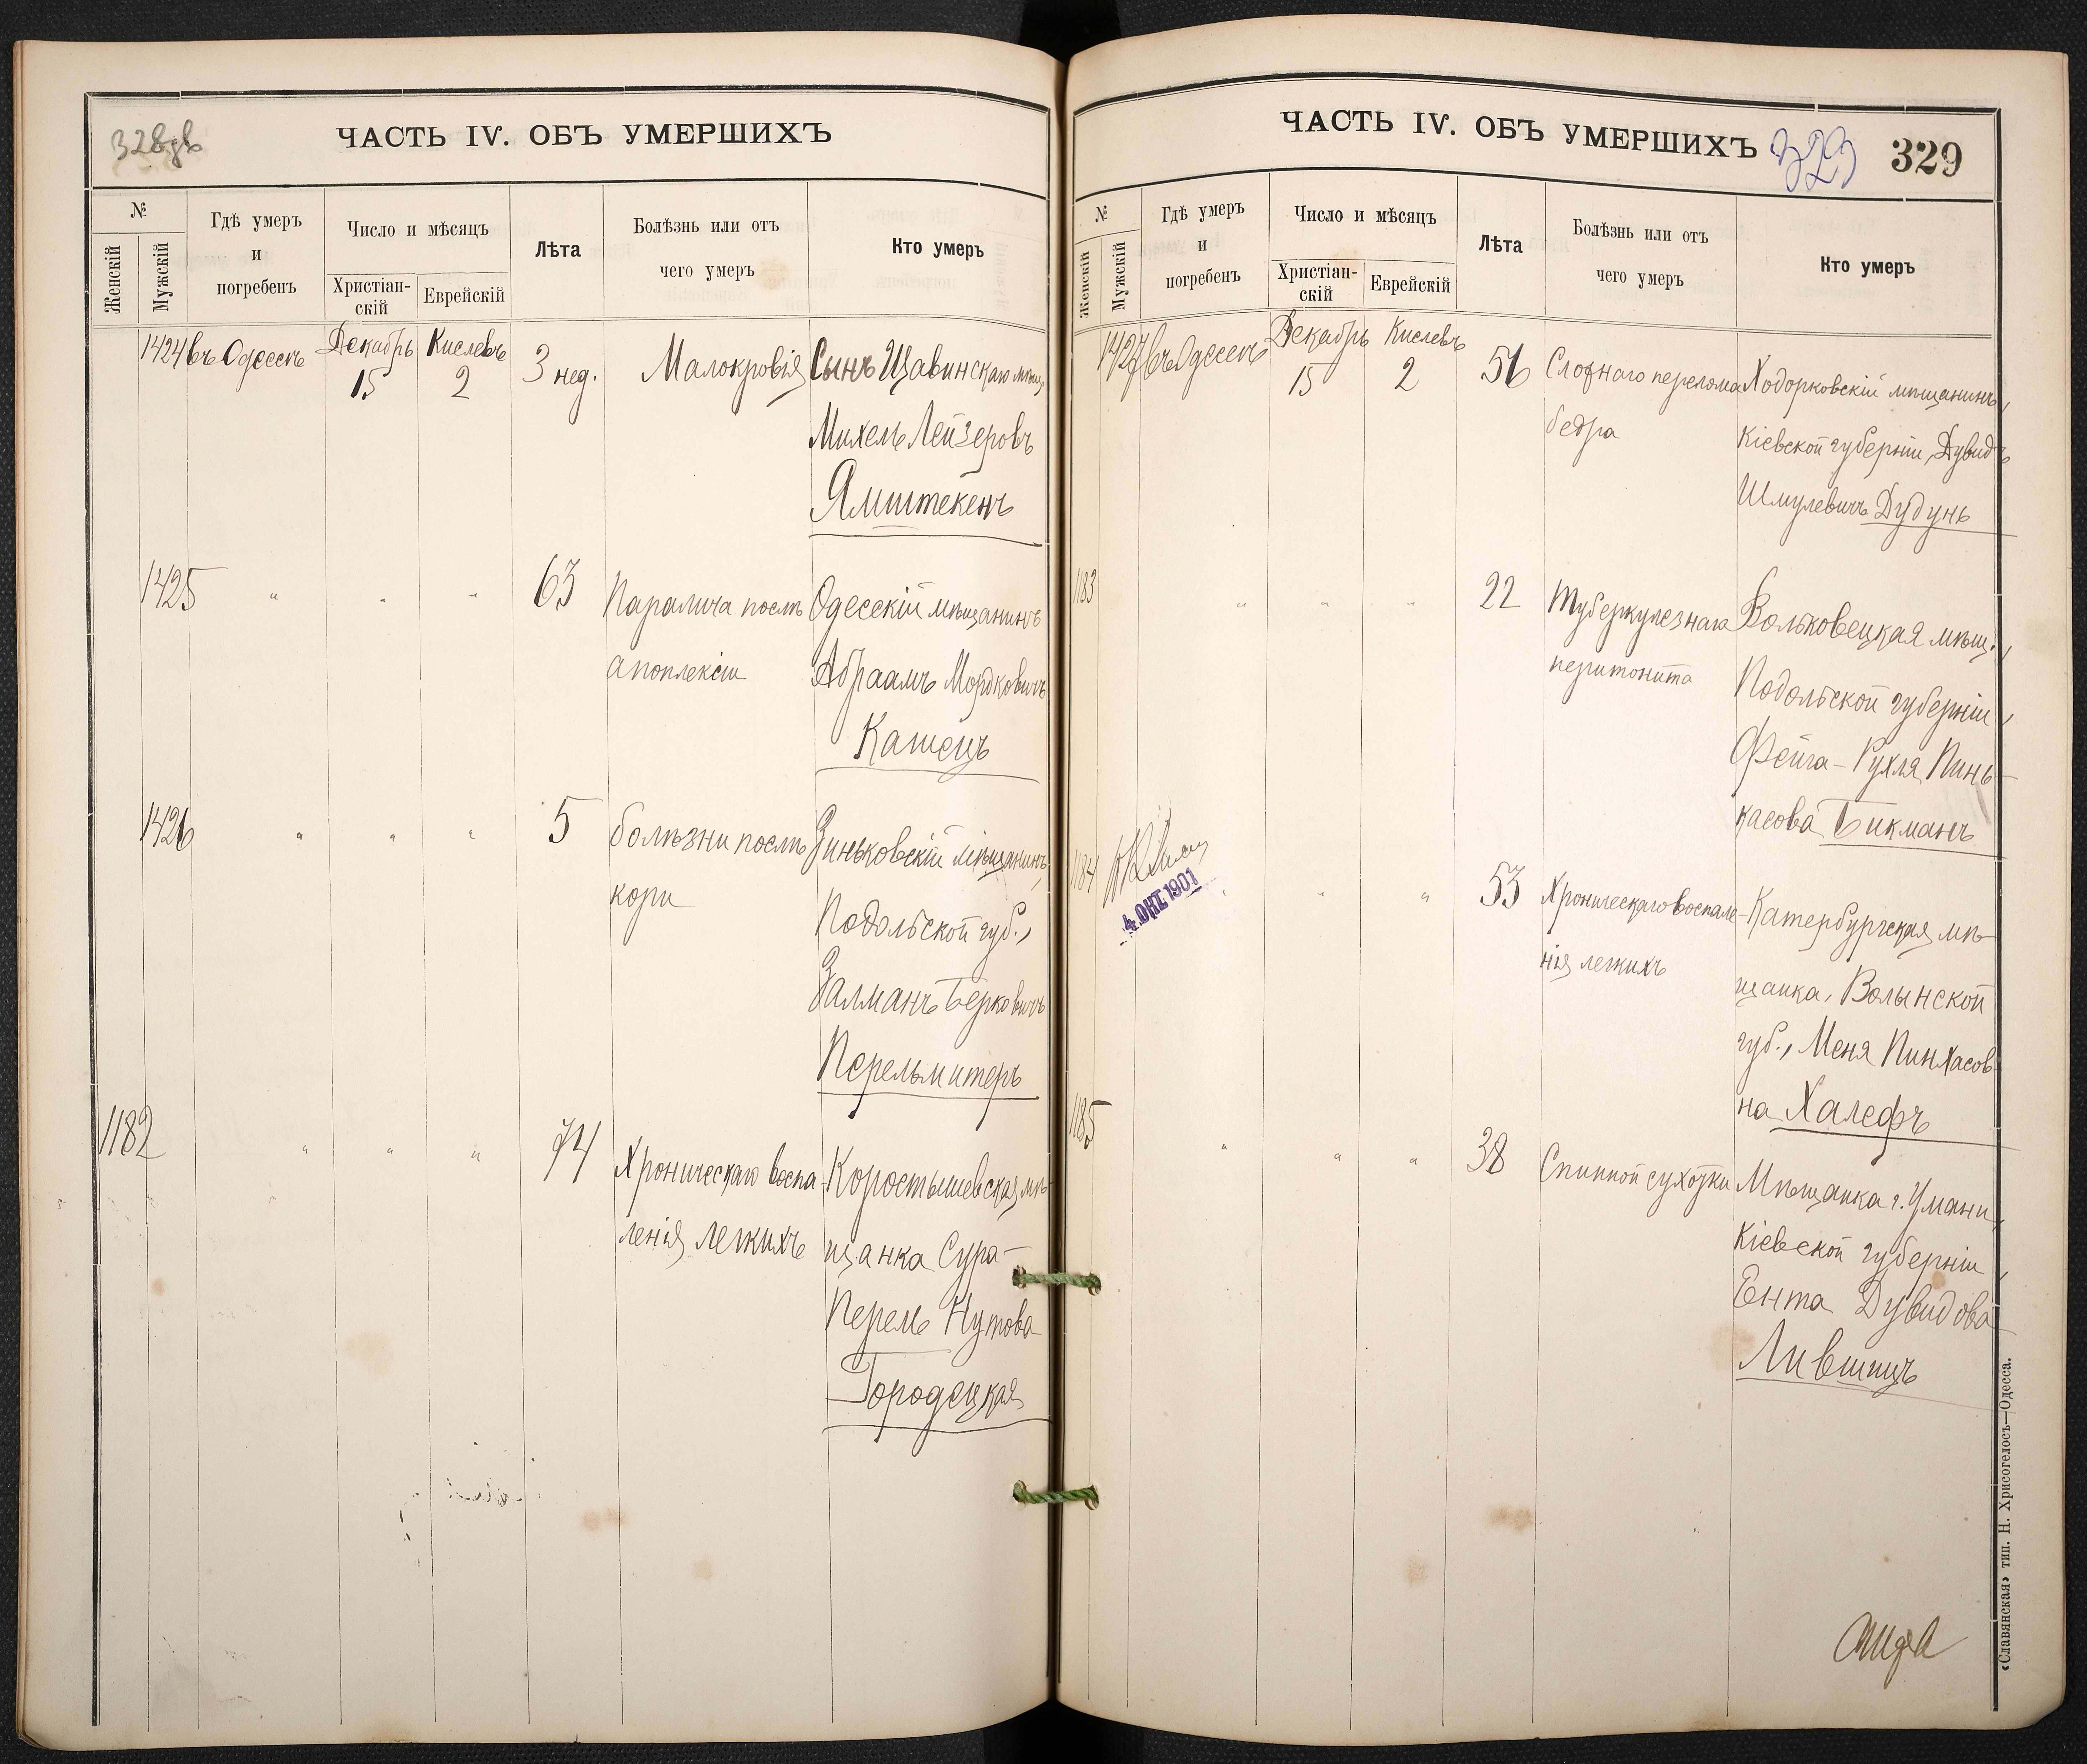 ЧАСТЬ IV. ОБЪ УМЕРШИХЪ
№
Женскій
Мужскій
Гдѣ умеръ
и
погребенъ
Число и мѣсяцъ
Христіан-
скій
Еврейскій
Лѣта
Болѣзнь или отъ
чего умеръ
Кто умеръ
1424 въ Одессѣ Декабрь 15 Кислевъ 2 3 нед. Малокровія Сынъ Щавинскаго мѣщ.
Михель Лейзеровъ
Ямштекенъ
1425 " " " 63 Паралича послѣ Одесскій мѣщанинъ
апоплексіи Абраамъ Мордковичъ
Кашецъ
1426 " " " 5 болѣзни послѣ Зиньковскій мѣщанинъ,
кори Подольской губ.,
Залманъ Берковичъ
Перельмитеръ
1182 " " " 74 Хроническаго воспа- Коростышевская мѣ-
ленія легкихъ щанка Сура-
Перель Нутова
Городецкая
ЧАСТЬ IV. ОБЪ УМЕРШИХЪ 329 329
№
Женскій
Мужскій
Гдѣ умеръ
и
погребенъ
Число и мѣсяцъ
Христіан-
скій
Еврейскій
Лѣта
Болѣзнь или отъ
чего умеръ
Кто умеръ
1427 въ Одессѣ Декабрь 15 Кислевъ 2 56 Сложнаго перелома Ходорковскій мѣщанинъ,
бедра Кіевской губерніи, Дувидъ
Шмулевичъ Дубунь
1183 " " " 22 Туберкулезнаго Вольковецкая мѣщ.,
перитонита Подольской губерніи,
Фейга-Рухля Пинь-
касова Бикманъ
1184 " " " 53 Хроническаго воспале- Катербургская мѣ-
4 ОКТ 1901
нія легкихъ щанка, Волынской
губ., Меня Пинхасов-
на Халефъ
1185 " " " 38 Спинной сухотки Мѣщанка г. Умани,
Кіевской губерніи,
Ента Дувидова
Лившицъ
«Славянская» тип. Н. Хрисогелосъ—Одесса.